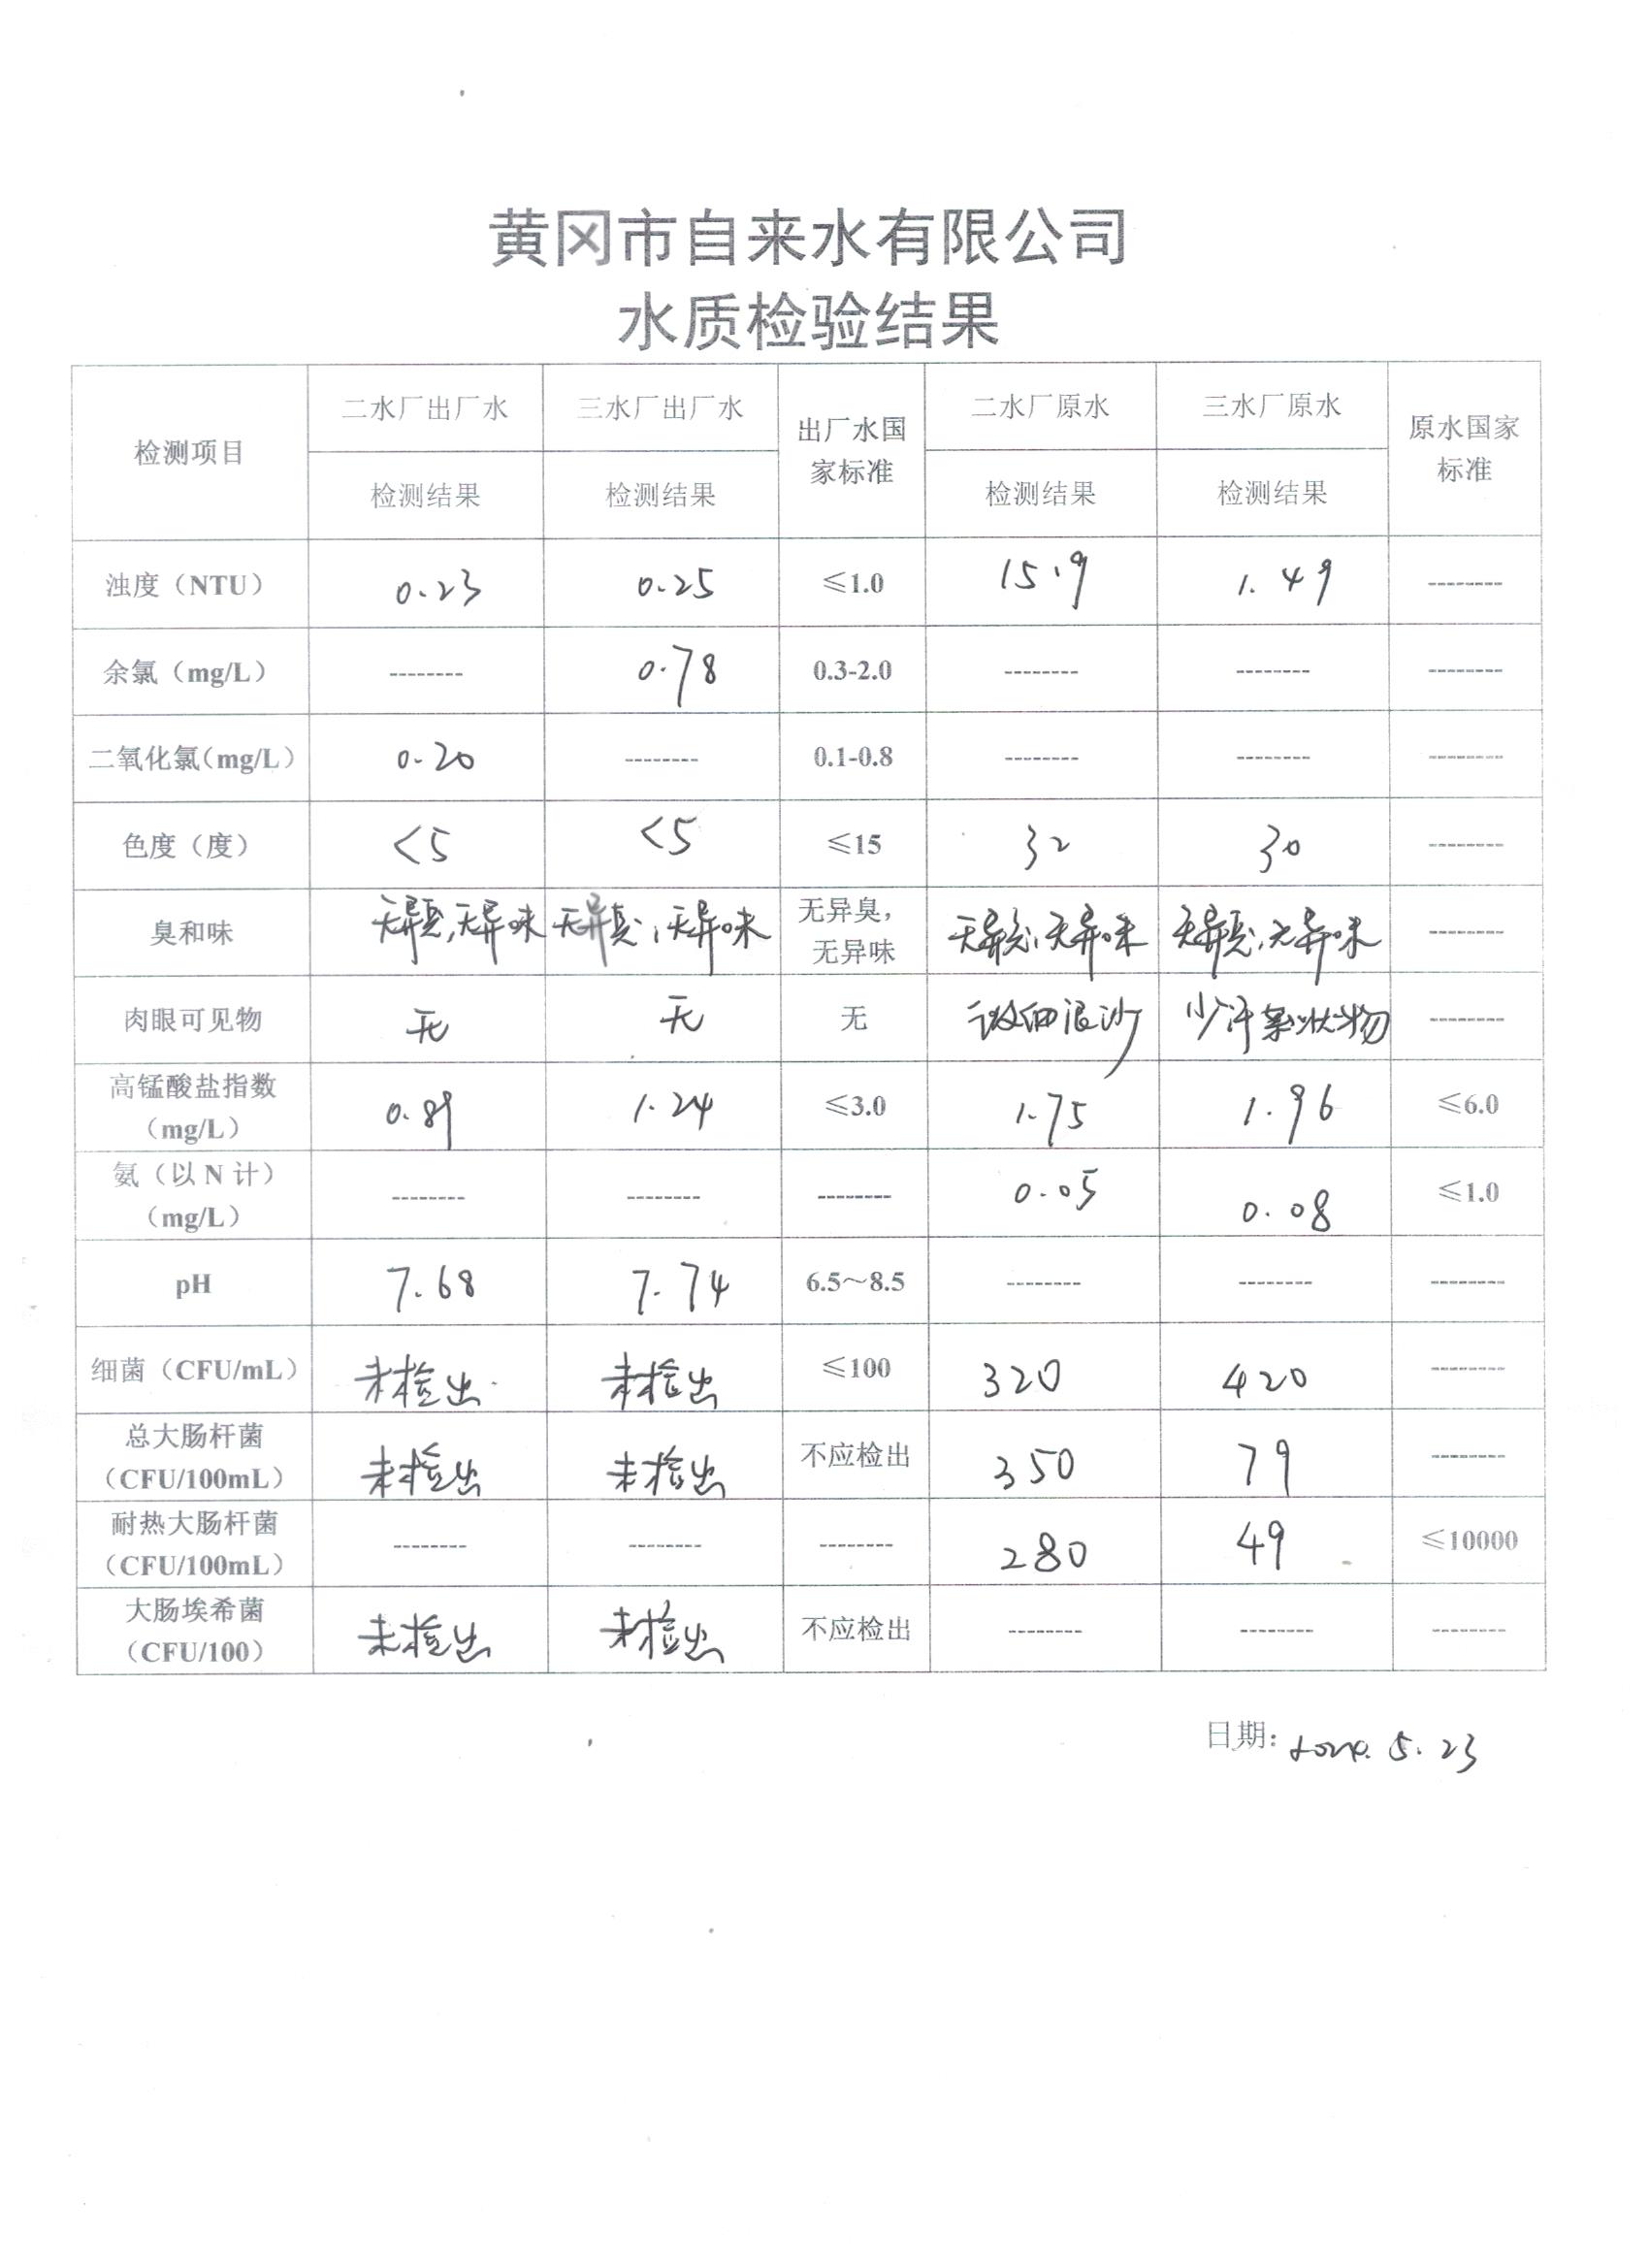 黄冈市自来水有限公司
水质检验结果
检测项目 二水厂出厂水 三水厂出厂水 出厂水国家标准 二水厂原水 三水厂原水 原水国家标准
检测结果 检测结果 检测结果 检测结果
浊度（NTU） 0.23 0.25 ≤1.0 15.9 1.49 --------
余氯（mg/L） -------- 0.78 0.3-2.0 -------- -------- --------
二氧化氯（mg/L） 0.20 -------- 0.1-0.8 -------- -------- --------
色度（度） <5 <5 ≤15 32 30 --------
臭和味 无异臭,无异味 无异臭,无异味 无异臭，无异味 无异臭,无异味 无异臭,无异味 --------
肉眼可见物 无 无 无 微细泥沙 少许絮状物 --------
高锰酸盐指数（mg/L） 0.89 1.24 ≤3.0 1.75 1.96 ≤6.0
氨（以 N 计）（mg/L） -------- -------- -------- 0.05 0.08 ≤1.0
pH 7.68 7.74 6.5～8.5 -------- -------- --------
细菌（CFU/mL） 未检出 未检出 ≤100 320 420 --------
总大肠杆菌（CFU/100mL） 未检出 未检出 不应检出 350 79 --------
耐热大肠杆菌（CFU/100mL） -------- -------- -------- 280 49 ≤10000
大肠埃希菌（CFU/100） 未检出 未检出 不应检出 -------- -------- --------
日期: 2024.5.23